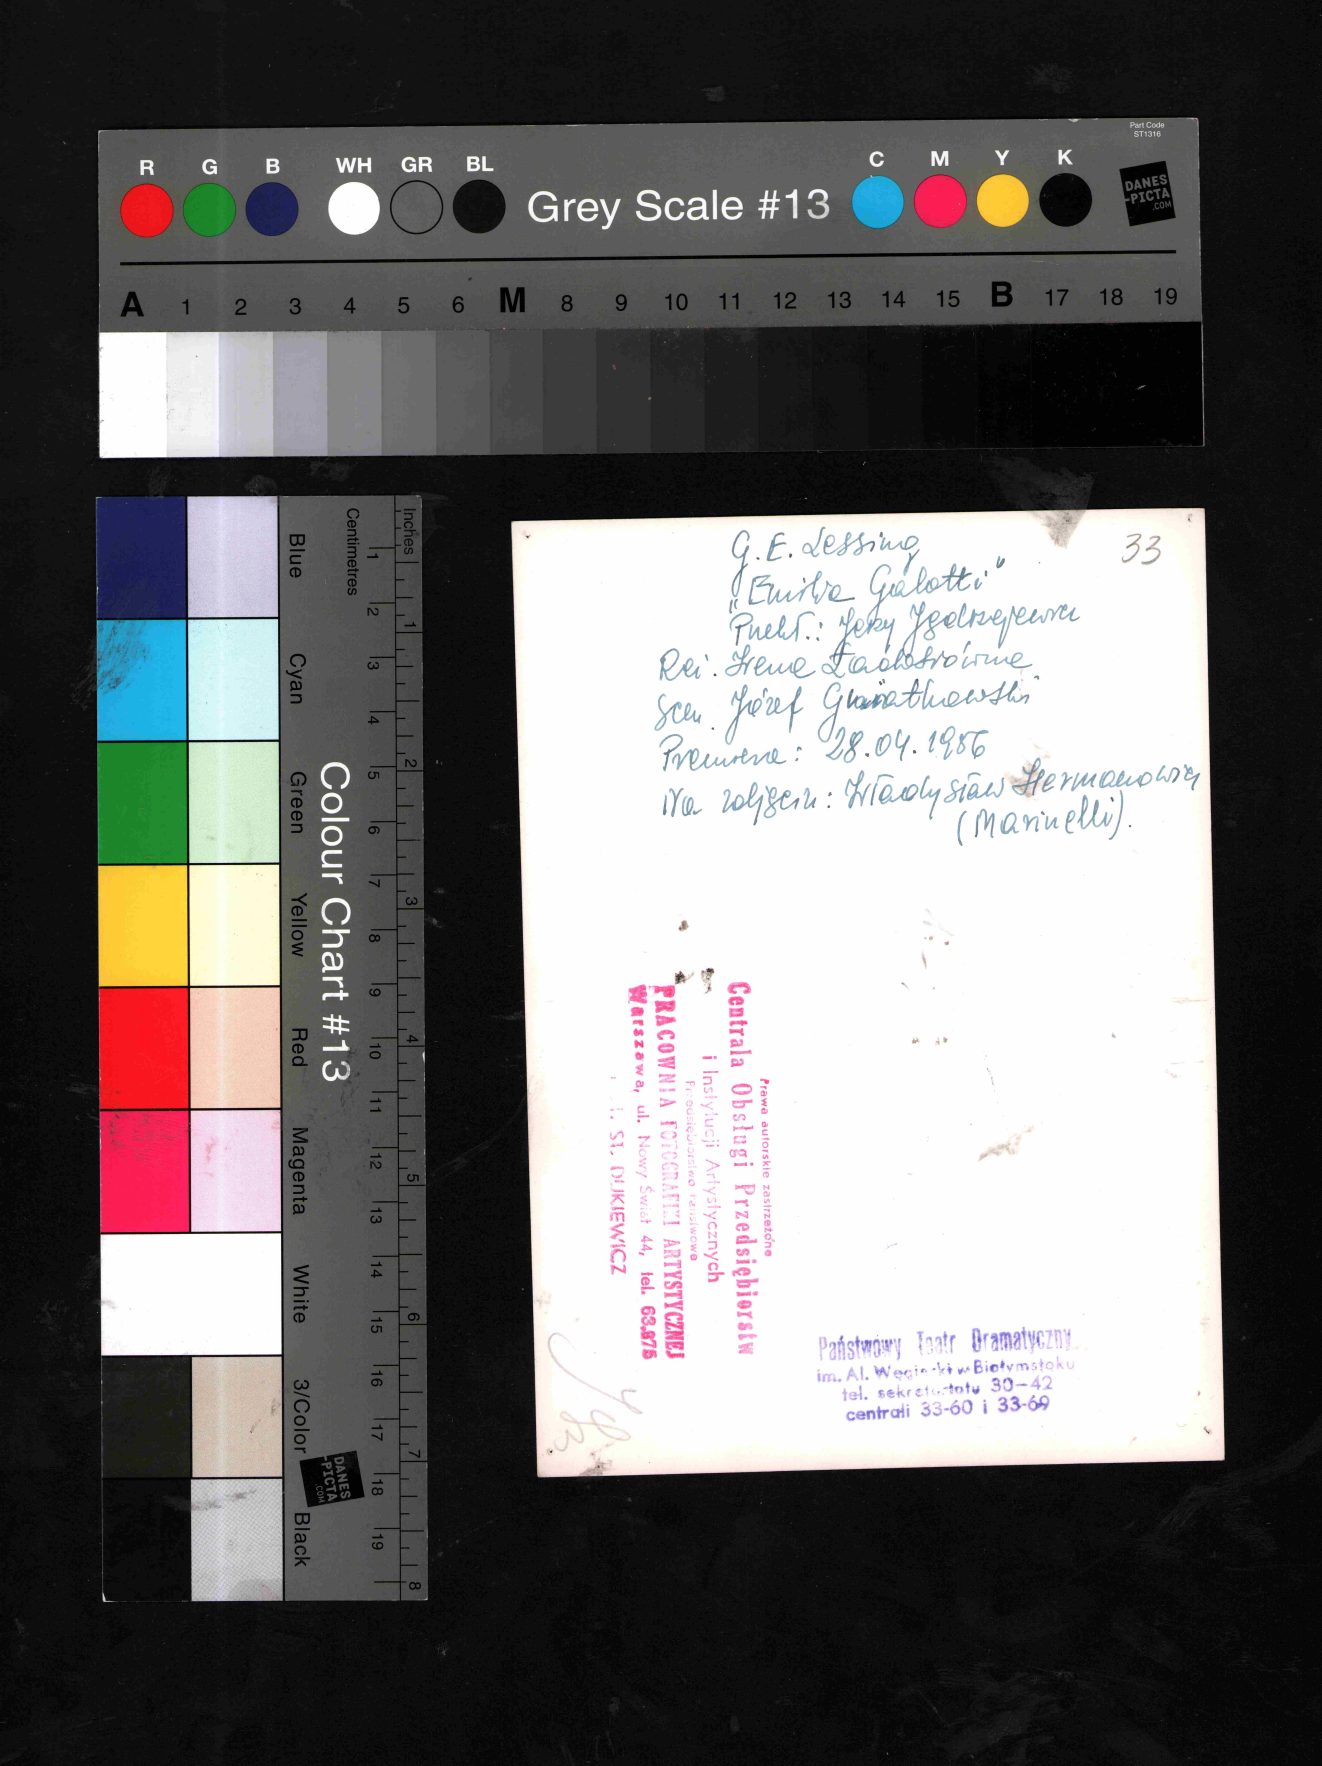 Part Code
ST1316
R G B WH GR BL Grey Scale #13 C M Y K
DANES
-PICTA
.COM
A 1 2 3 4 5 6 M 8 9 10 11 12 13 14 15 B 17 18 19
Colour Chart #13
Blue
Cyan
Green
Yellow
Red
Magenta
White
3/Color
Black
Centimetres
1 2 3 4 5 6 7 8 9 10 11 12 13 14 15 16 17 18 19
Inches
1 2 3 4 5 6 7 8
DANES
-PICTA
.COM
33
G. E. Lessing
"Emilia Galotti"
Jerzy
Reż. Irena
Scen. Józef
Premiera: 28.04.1956
Na zdjęciu: Władysław Hermanowicz
(Marinelli).
Prawa autorskie zastrzeżone
Centrala Obsługi Przedsiębiorstw
i Instytucji Artystycznych
Przedsiębiorstwo Państwowe
PRACOWNIA FOTOGRAFIKI ARTYSTYCZNEJ
Warszawa, ul. Nowy Świat 44, tel. 63.975
ST. DUKIEWICZ
Państwowy Teatr Dramatyczny
im. Al. Węgierki w Białymstoku
tel. sekretariatu 30-42
centrali 33-60 i 33-69